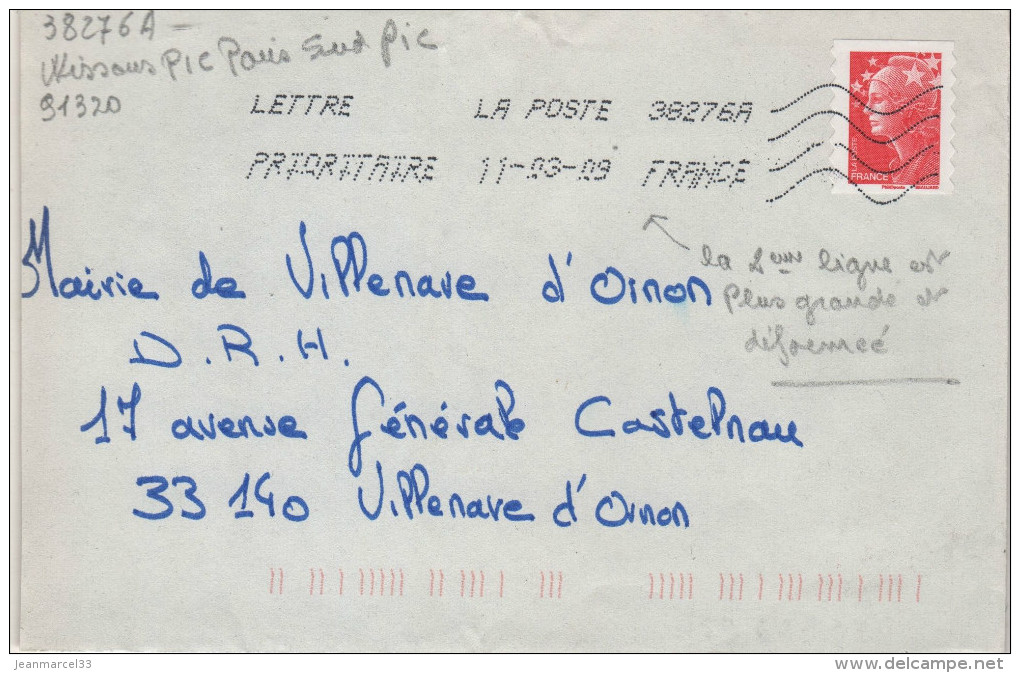 38276A -
Wissous PIC Paris Sud Pic
91320
LETTRE LA POSTE 38276A
PRIORITAIRE 11-03-09 FRANCE
FRANCE
la 2ème ligne est
Plus grande et
déformeé
Mairie de Villenave d'Ornon
D.R.H.
17 avenue Générale Castelnau
33 140 Villenave d'Ornon
jeanmarcel33
www.delcampe.net